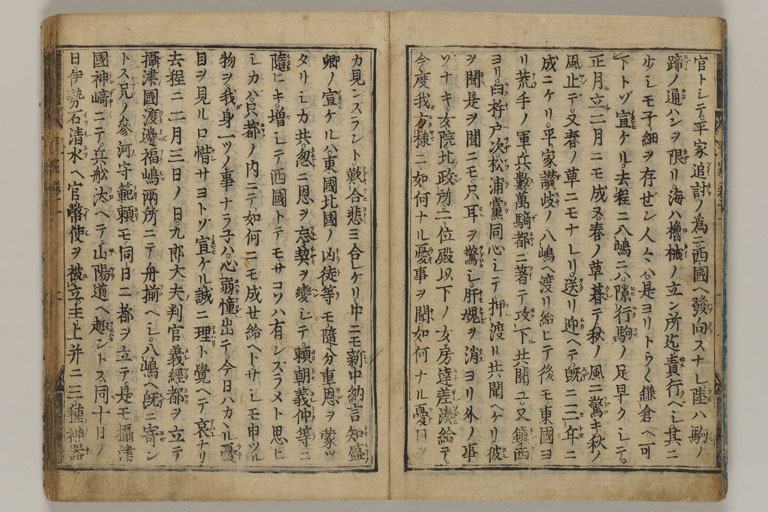 官トシテ平家追討ノ為ニ西國ヘ發向スナレ陸ハ駒ノ
蹄ノ通ハンヲ限リ海ハ櫓械ノ立ン所迄責行ベシ其ニ
少シモ子細ヲ存ゼン人々ハ是ヨリトウ〳〵鎌倉ヘ可
下トゾ宣ケル去程ニ八嶋ニハ隙行駒ノ足早クシテ
正月立二月ニモ成ヌ春ノ草暮テ秋ノ風ニ驚キ秋ノ
風止テ又春ノ草ニモナレリ送リ迎ヘテ既ニ三年ニ
成ニケリ平家讃岐ノ八嶋ヘ渡リ給ヒテ後モ東國ヨ
リ荒手ノ軍兵數萬騎都ニ著テ攻下共聞ユ又鎮西
ヨリ臼杵戸次松浦黨同心シテ押渡ル共聞ヘケリ彼
ヲ聞是ヲ聞ニモ只耳ヲ驚シ肝魂ヲ消ヨリ外ノ事
ソナキ女院北政所二位殿以下ノ女房達差湊給テ
今度我方様ニ如何ナル憂事ヲ聞如何ナル憂目ヲ
カ見ンズラント歎合悲ミ合レケリ中ニモ新中納言知盛
卿ノ宣ケルハ東國北國ノ凶徒等モ隨分重恩ヲ蒙ツ
タリシカ共忽ニ恩ヲ忘契ヲ變シテ賴朝義仲等ニ
隨ヒキ増シテ西國トテモサコソハ有ンズラメト思ヒ
シカハ只都ノ内ニテ如何ニモ成セ給ヘトサシモ申ツル
物ヲ我身一ツノ事ナラ子ハ心弱憧出テ今日ハカヽル憂
目ヲ見ル口惜サヨトゾ宣ケル誠ニ理ト覺ヘテ哀ナリ
去程ニ二月三日ノ日九郎大夫判官義經都ヲ立テ
攝津國渡邊福嶋兩所ニテ舟揃ヘシ八嶋ヘ既ニ寄ン
トス兄ノ參河守範賴モ同日ニ都ヲ立テ是モ攝津
國神崎ニテ兵舩汰ヘテ山陽道ヘ趣ントス同十日ノ
日伊勢石清水ヘ官幣使ヲ被立主上并ニ三種神器